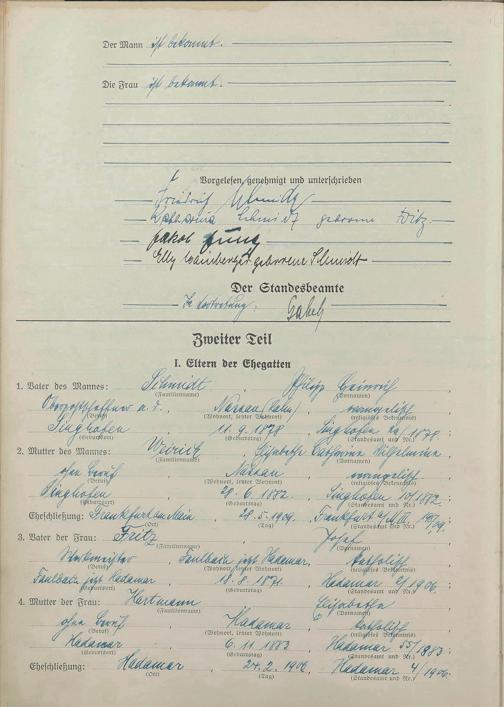 Der Mann ist bekannt.
Die Frau ist bekannt.
Vorgelesen, genehmigt und unterschrieben
Friedrich Schmidt
Katharina Schmidt geborene Fritz
Jakob Jung
Elly geborene Schmidt
Der Standesbeamte
In Vertretung: Gabel
Zweiter Teil
I. Eltern der Ehegatten
1. Vater des Mannes: Schmidt, Philipp Heinrich
(Familienname) (Vornamen)
Oberpostschaffner a. D., Nassau (Lahn), evangelisch
(Beruf) (Wohnort, letzter Wohnort) (religiöses Bekenntnis)
Singhofen, 11. 9. 1878, Singhofen 1878.
(Geburtsort) (Geburtstag) (Standesamt und Nr.)
2. Mutter des Mannes: Weirich, Elisabethe Catharina Wilhelmine
(Familienname) (Vornamen)
ohne Beruf, Nassau, evangelisch
(Beruf) (Wohnort, letzter Wohnort) (religiöses Bekenntnis)
Singhofen, 1882, Singhofen 10/1882.
(Geburtsort) (Geburtstag) (Standesamt und Nr.)
Eheschließung: Frankfurt am Main, 1909, Frankfurt
(Ort) (Tag) (Standesamt und Nr.)
3. Vater der Frau: Fritz, Josef
(Familienname) (Vornamen)
Faulbach jetzt Hadamar, katholisch
(Beruf) (Wohnort, letzter Wohnort) (religiöses Bekenntnis)
Faulbach jetzt Hadamar, 18. 8. 1871, Hadamar
(Geburtsort) (Geburtstag) (Standesamt und Nr.)
4. Mutter der Frau: Hartmann, Elisabetha
(Familienname) (Vornamen)
ohne Beruf, Hadamar, katholisch
(Beruf) (Wohnort, letzter Wohnort) (religiöses Bekenntnis)
Hadamar, 6. 11. 1883, Hadamar 55/1883.
(Geburtsort) (Geburtstag) (Standesamt und Nr.)
Eheschließung: Hadamar, 24. 2. 1906, Hadamar 4/1906.
(Ort) (Tag) (Standesamt und Nr.)